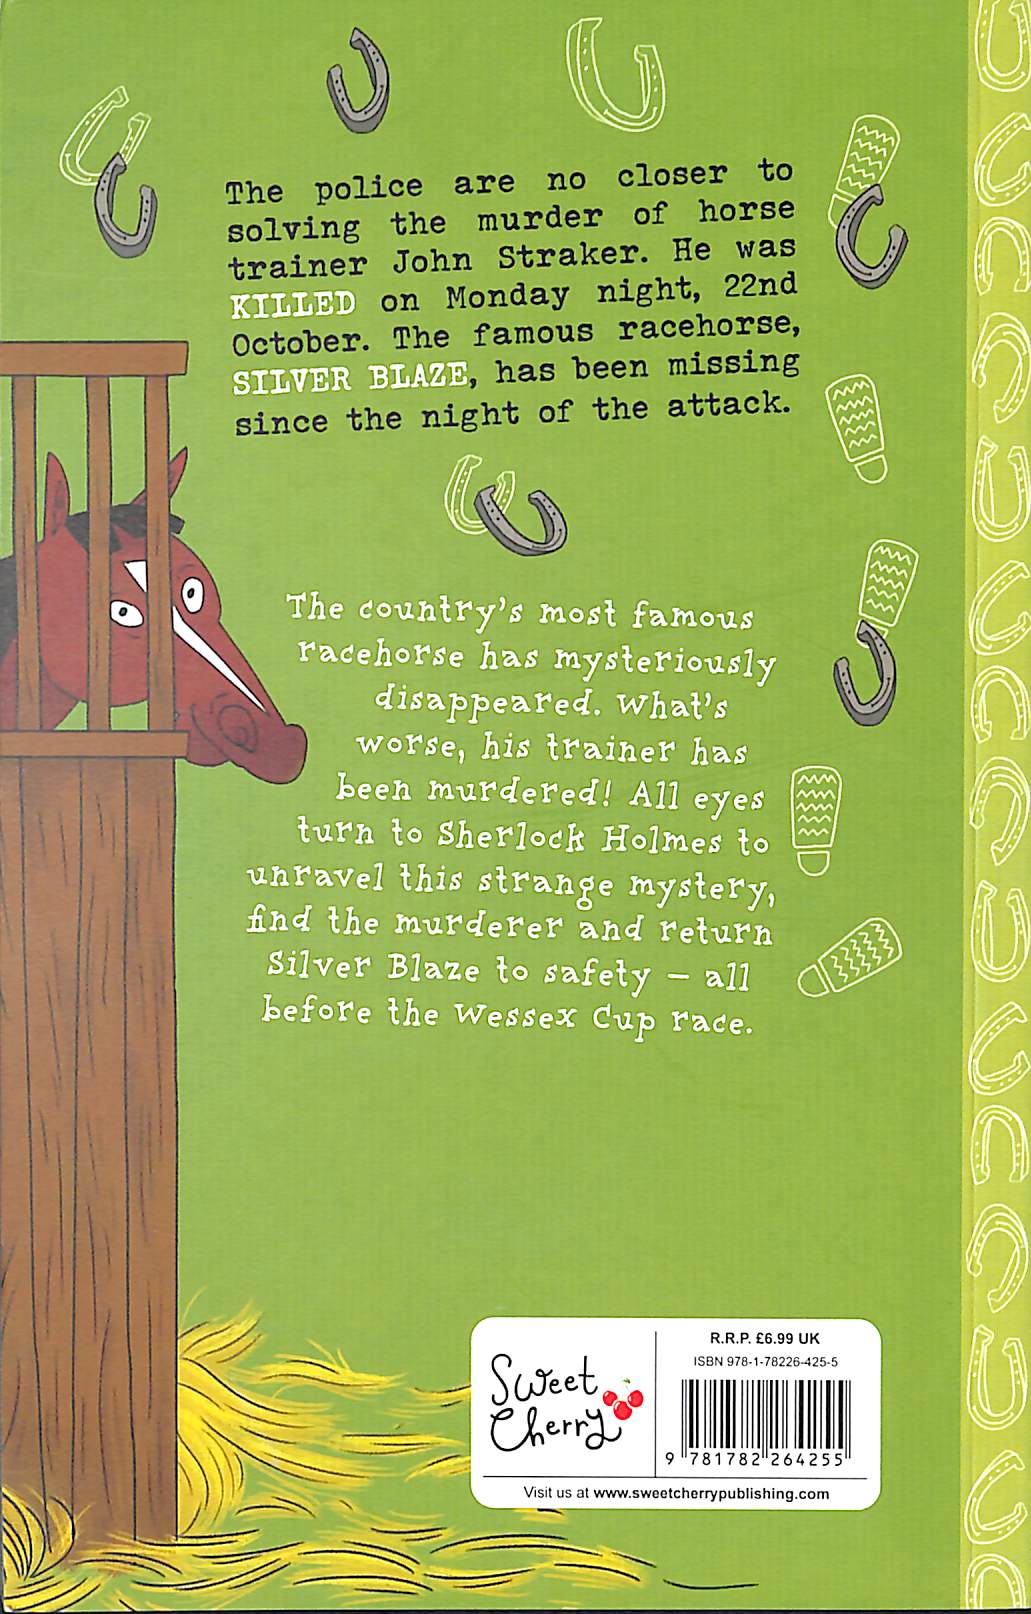 The police are no closer to
solving the murder of horse
trainer John Straker. He was
KILLED on Monday night, 22nd
October. The famous racehorse,
SILVER BLAZE, has been missing
since the night of the attack.
The country's most famous
racehorse has mysteriously
disappeared. What's
worse, his trainer has
been murdered! All eyes
turn to Sherlock Holmes to
unravel this strange mystery,
find the murderer and return
Silver Blaze to safety – all
before the Wessex Cup race.
Sweet
Cherry
R.R.P. £6.99 UK
ISBN 978-1-78226-425-5
9 781782 264255
Visit us at www.sweetcherrypublishing.com